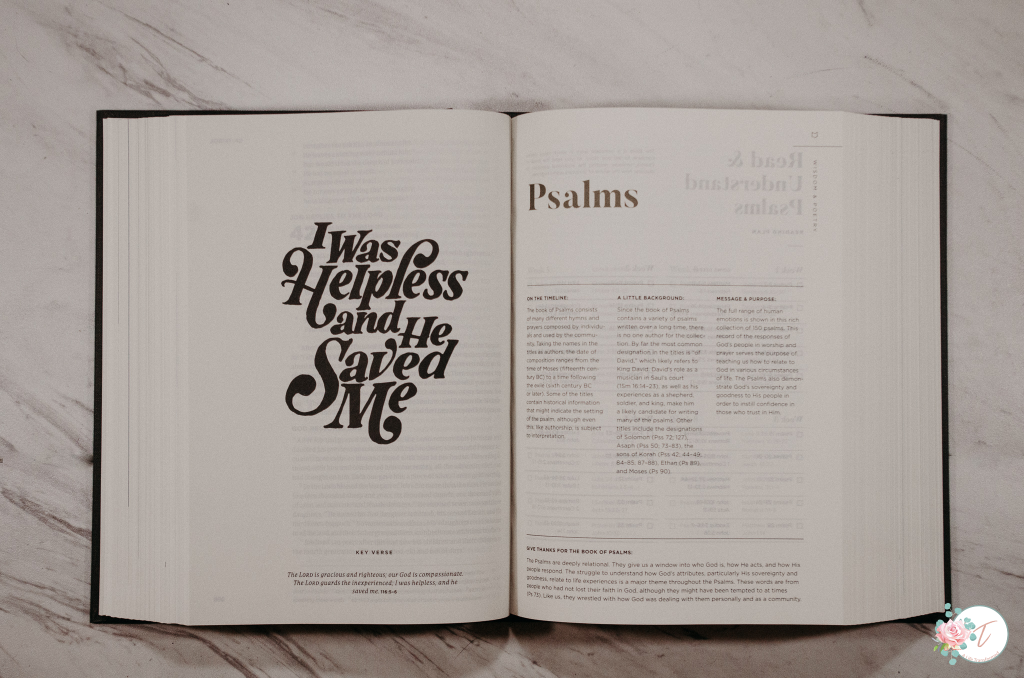 I Was
Helpless
and He
Saved
Me
KEY VERSE
The LORD is gracious and righteous; our God is compassionate.
The LORD guards the inexperienced; I was helpless, and he
saved me. 116:5-6
Psalms
WISDOM & POETRY
ON THE TIMELINE:
The book of Psalms consists
of many different hymns and
prayers composed by individu-
als and used by the commu-
nity. Taking the names in the
titles as authors, the date of
composition ranges from the
time of Moses (fifteenth cen-
tury BC) to a time following
the exile (sixth century BC
or later). Some of the titles
contain historical information
that might indicate the setting
of the psalm, although even
this, like authorship, is subject
to interpretation.
A LITTLE BACKGROUND:
Since the book of Psalms
contains a variety of psalms
written over a long time, there
is no one author for the collec-
tion. By far the most common
designation in the titles is "of
David," which likely refers to
King David. David's role as a
musician in Saul's court
(1Sm 16:14–23), as well as his
experiences as a shepherd,
soldier, and king, make him
a likely candidate for writing
many of the psalms. Other
titles include the designations
of Solomon (Pss 72; 127),
Asaph (Pss 50; 73–83), the
sons of Korah (Pss 42; 44–49;
84–85; 87–88), Ethan (Ps 89),
and Moses (Ps 90).
MESSAGE & PURPOSE:
The full range of human
emotions is shown in this rich
collection of 150 psalms. This
record of the responses of
God's people in worship and
prayer serves the purpose of
teaching us how to relate to
God in various circumstances
of life. The Psalms also demon-
strate God's sovereignty and
goodness to His people in
order to instill confidence in
those who trust in Him.
GIVE THANKS FOR THE BOOK OF PSALMS:
The Psalms are deeply relational. They give us a window into who God is, how He acts, and how His
people respond. The struggle to understand how God's attributes, particularly His sovereignty and
goodness, relate to life experiences is a major theme throughout the Psalms. These words are from
people who had not lost their faith in God, although they might have been tempted to at times
(Ps 73). Like us, they wrestled with how God was dealing with them personally and as a community.
T